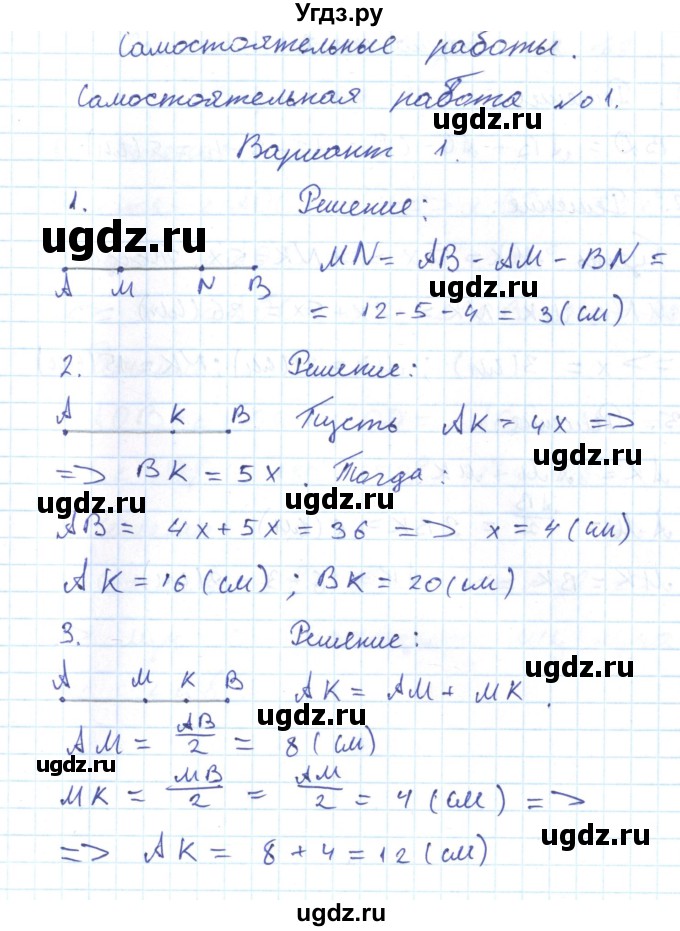 Угдз.ру
Самостоятельные работы.
Самостоятельная работа №1.
ugdz.ru
Вариант 1.
1. Решение:
ugdz.ru
MN = AB - AM - BN =
A M N B
ugdz.ru
= 12 - 5 - 4 = 3 (см)
2. Решение:
A K B Пусть AK = 4x =>
ugdz.ru
=> BK = 5x. Тогда:
ugdz.ru ugdz.ru
AB = 4x + 5x = 36 => x = 4 (см)
AK = 16 (см); BK = 20 (см)
ugdz.ru
3. Решение:
ugdz.ru
A M K B AK = AM + MK.
ugdz.ru
AM = AB/2 = 8 (см)
ugdz.ru
MK = MB/2 = AM/2 = 4 (см) =>
ugdz.ru
=> AK = 8 + 4 = 12 (см)
ugdz.ru
ugdz.ru